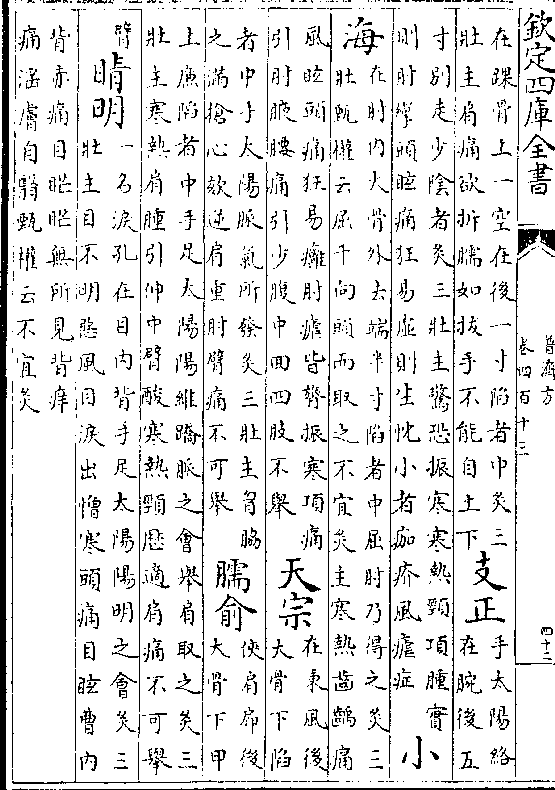 欽定四庫全書
普濟方
卷四百十三
四十三
在踝骨上一空在後一寸陷者中灸三
壯主肩痛欲折臑如拔手不能自上下
支正
手太陽絡
在腕後五
寸別走少陰者灸三壯主驚恐振寒寒熱頸項腫實
則肘攣頭眩痛狂易虛則生忧小者痂疥風瘧症
小
海
在肘内大骨外去端半寸陷者中屈肘乃得之灸三
壯甄權云屈手向頭而取之不宜灸主寒熱齒齲痛
風眩頭痛狂易癰肘瘡皆膂振寒項痛
引肘腋腰痛引少腹中四肢不舉
天宗
在秉風後
大骨下陷
者中手太陽脈氣所發灸三壯主胷脇
之滿搶心欬逆肩重肘臂痛不可舉
臑俞
俠肩廍後
大骨下甲
上廉陷者中手足太陽陽維蹻脈之會舉肩取之灸三
壯主寒熱肩腫引仲中臂酸寒熱頸厯適肩痛不可舉
臂
睛明
一名淚孔在目内眥手足太陽陽明之會灸三
壯主目不明惡風目淚出憎寒頭痛目眩瞢内
眥赤痛目䀮䀮無所見眥痒
痛淫膚白翳甄權云不宜灸